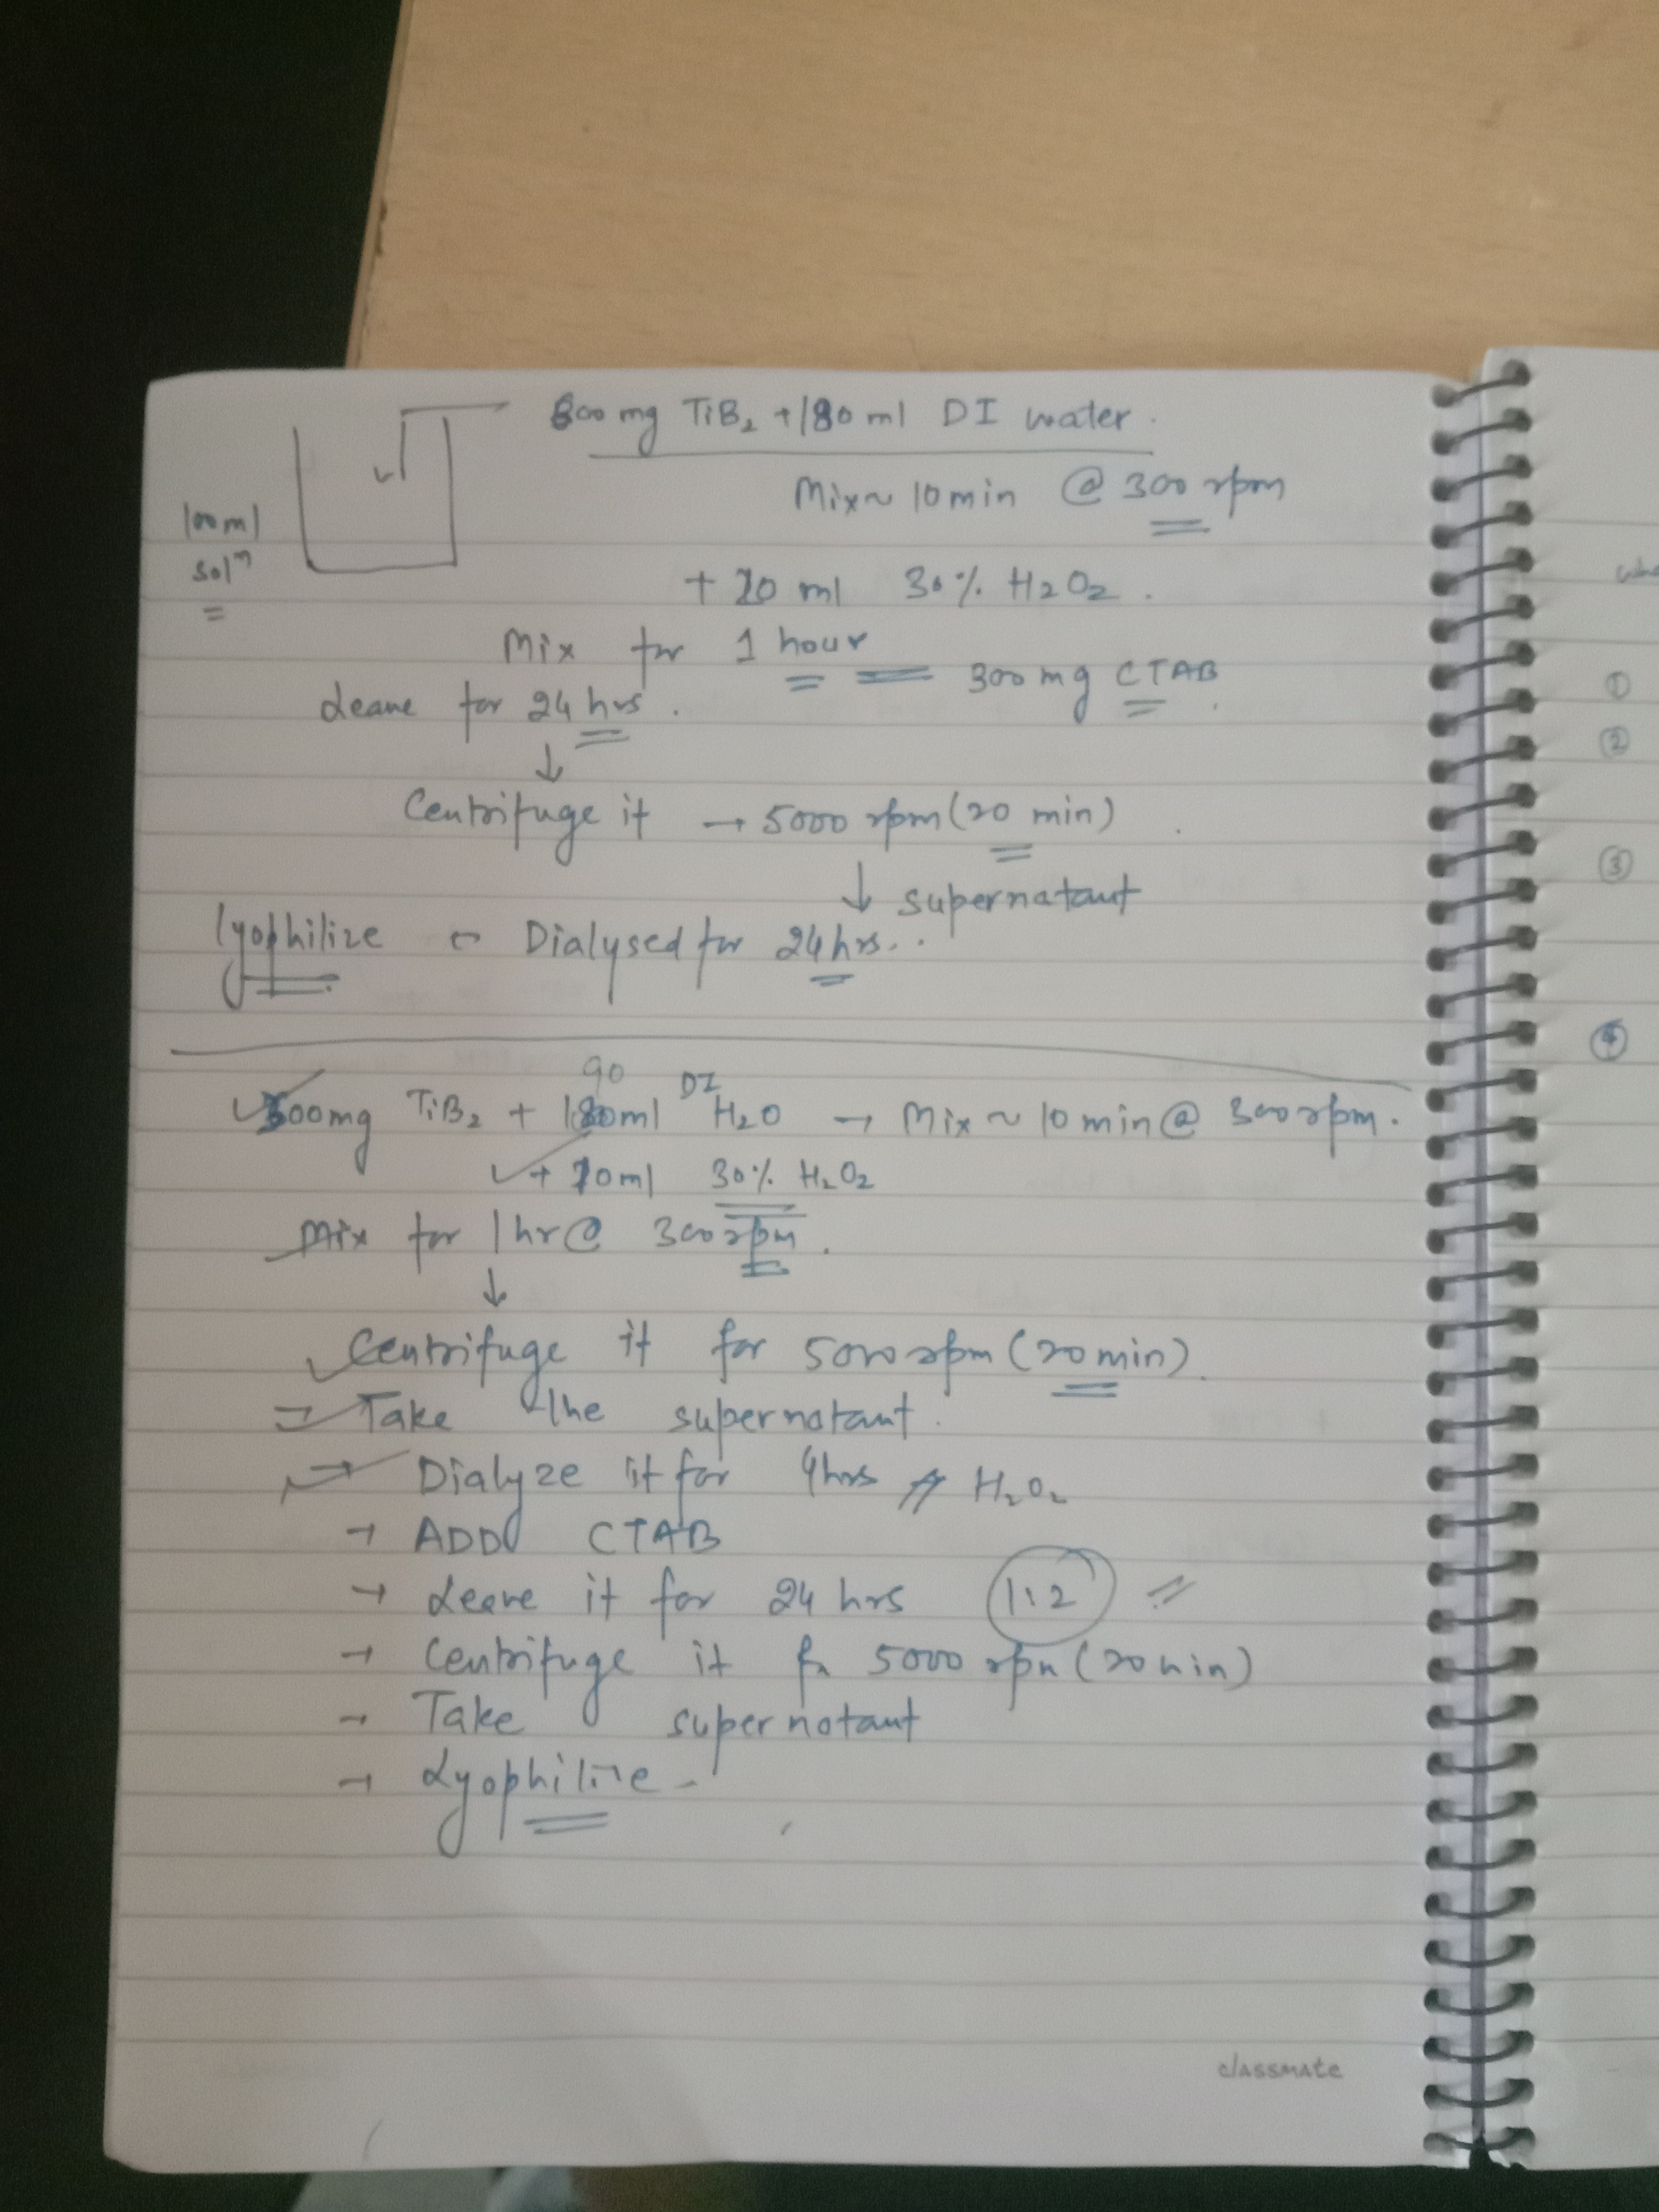 600 mg TiB2 + 180 ml DI water.
Mix ~ 10 min @ 300 rpm
100 ml
solⁿ
+ 20 ml 30% H2O2.
Mix for 1 hour
300 mg CTAB.
Leave for 24 hrs.
↓
Centrifuge it → 5000 rpm (20 min)
↓ supernatant
lyophilize ← Dialysed for 24 hrs..
90
DI
300mg TiB2 + ml H2O → Mix ~ 10 min @ 300 rpm.
+ 10 ml 30% H2O2
Mix for 1 hr @ 300 rpm.
↓
Centrifuge it for 5000 rpm (20 min).
→ Take the supernatant.
→ Dialyze it for 4hrs H2O2
→ ADD CTAB
→ Leave it for 24 hrs 1:2
→ Centrifuge it fr 5000 rpm (20 min)
→ Take supernatant
→ Lyophilize -
classmate
①
②
③
④